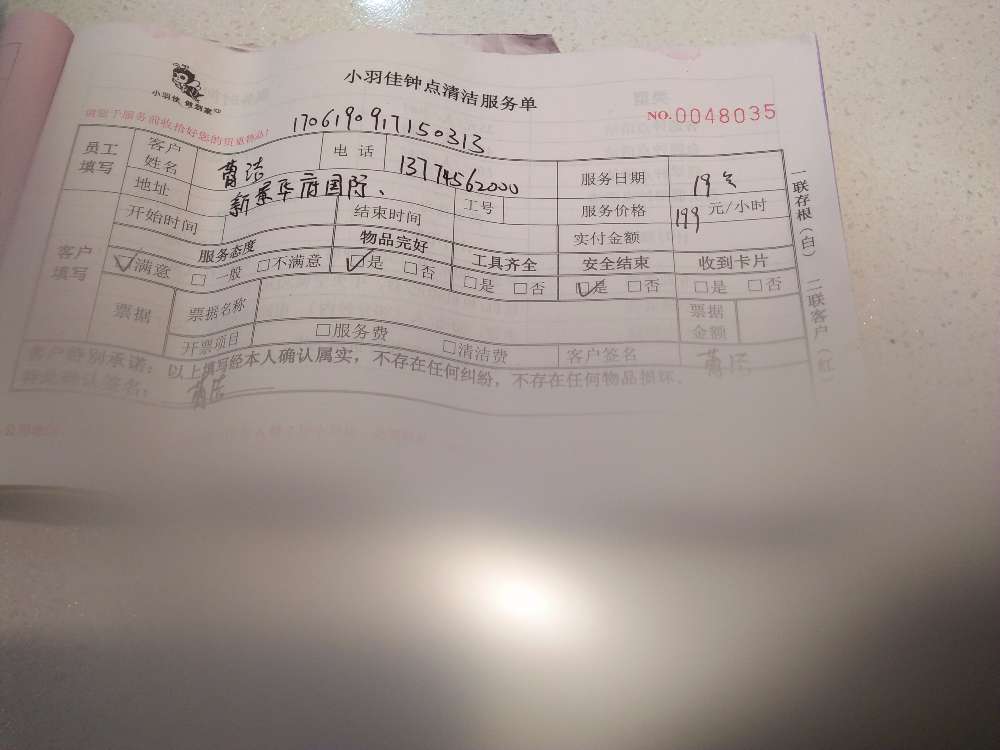 小羽佳钟点清洁服务单
小羽佳 做到家
NO.0048035
请您于服务前收拾好您的贵重物品!
170619091715 0313
员工填写 客户姓名 曹洁 电 话 13774562000 服务日期 19
地址 新景华府国际、 工号 服务价格 199 元/小时
开始时间 结束时间 实付金额
客户填写 服务态度 物品完好 工具齐全 安全结束 收到卡片
满意 □一般 □不满意 □是 □否 □是 □否 □是 □否 □是 □否
票据 票据名称 票据金额
开票项目 □服务费 □清洁费 客户签名 曹洁
客户特别承诺：以上填写经本人确认属实，不存在任何纠纷，不存在任何物品损坏．
特此确认签名： 曹洁
一联存根（白） 二联客户（红）